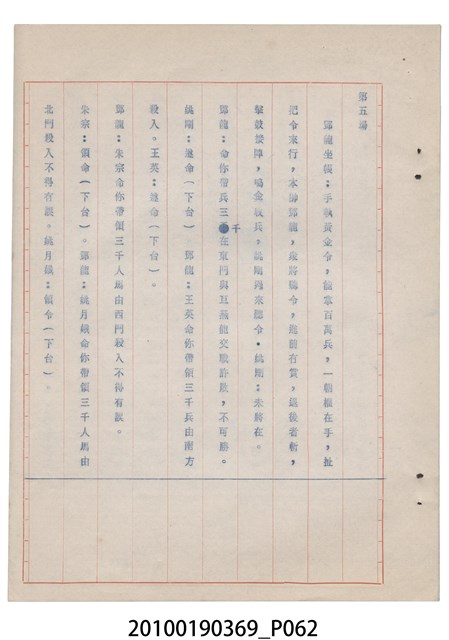 第五場
鄧龍坐帳：手執黃金令，統掌百萬兵，一朝權在手，扯
把令來行，本帥鄧龍，眾將聽令，進前有賞，退後者斬，
擊鼓接陣，鳴金收兵，姚剛過來聽令。姚剛：末將在。
鄧龍：命你帶兵三千在東門與互燕龍交戰詐敗，不可勝。
姚剛：遵命（下台） 鄧龍：王英命你帶領三千兵由南方
殺入。王英：遵命（下台）。
鄧龍：朱宗命你帶領三千人馬由西門殺入不得有誤。
朱宗：領命（下台）。鄧龍：姚月娥命你帶領三千人馬由
北門殺入不得有誤。姚月娥：領令（下台）。
20100190369_P062